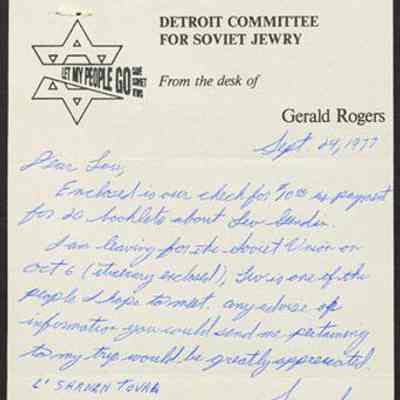 DETROIT COMMITTEE
FOR SOVIET JEWRY
LET MY PEOPLE GO SAVE SOVIET JEWS
From the desk of
Gerald Rogers
Sept. 29, 1977
Dear Lou,
Enclosed is our check for $10.00 as payment
for 20 booklets about Lev Gendin.
I am leaving for the Soviet Union on
Oct 6 (itinerary enclosed), Lev is one of the
people I hope to meet. Any advise or
information you could send me pertaining
to my trip would be greatly appreciated.
L' SHANAH TOVAH